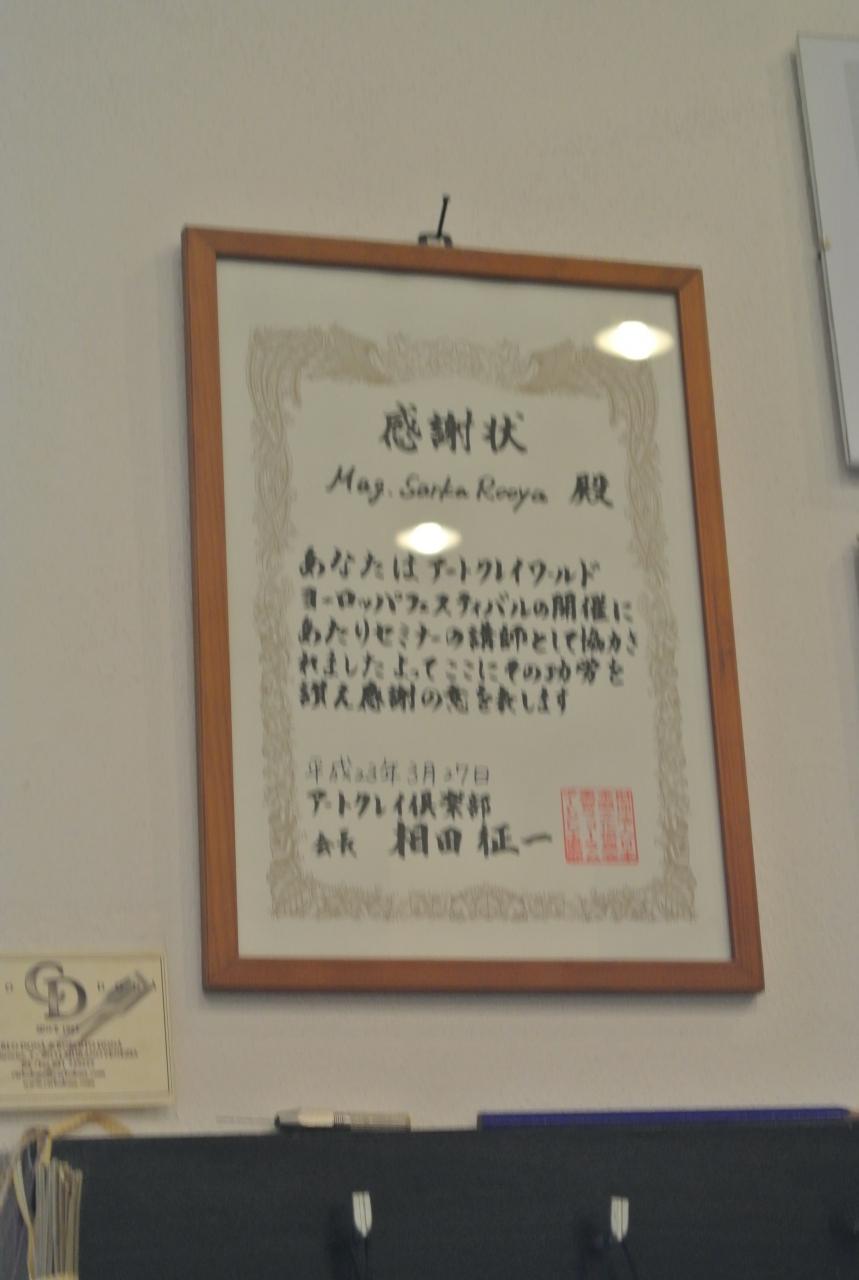 感謝状
Mag. Sarka Rooya 殿
あなたはアートクレイワールド
ヨーロッパフェスティバルの開催に
あたりセミナーの講師として協力さ
れましたよってここにその功労を
讃え感謝の意を表します
平成23年3月27日
アートクレイ倶楽部
会長 相田 征一
CD
SINCE